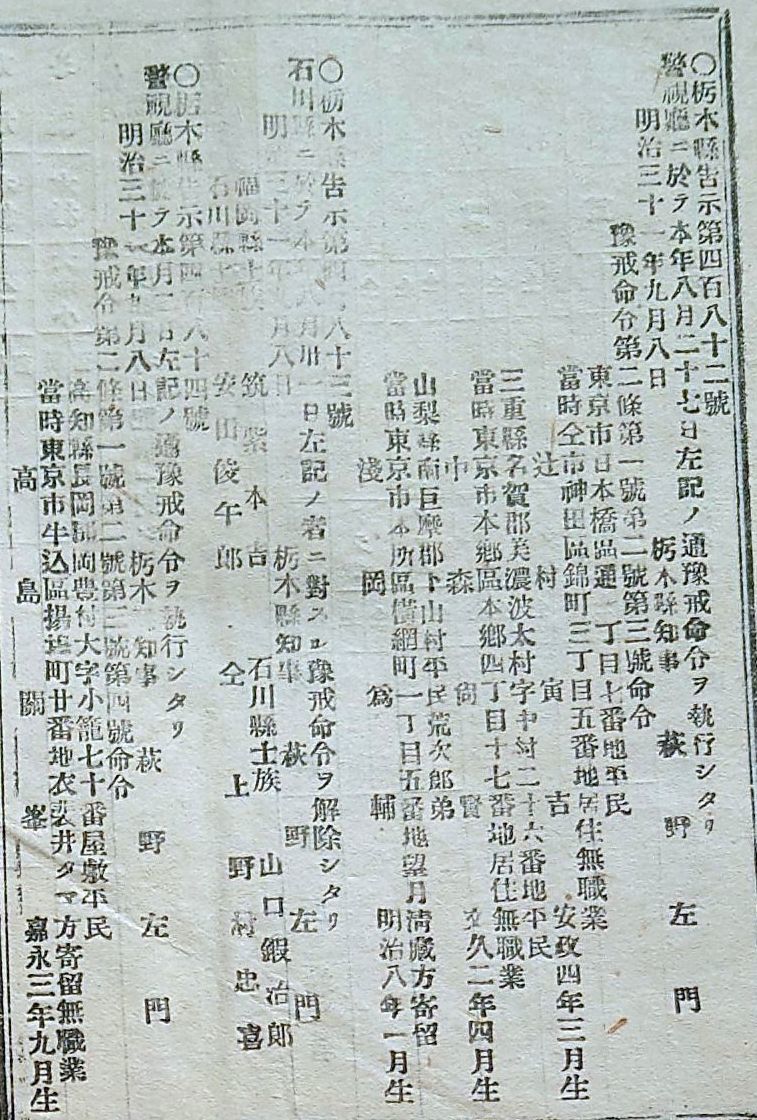 〇栃木縣告示第四百八十二號
警視廳ニ於テ本年八月二十七日左記ノ通豫戒命令ヲ執行シタリ
明治三十一年九月八日　栃木縣知事　萩野左門
豫戒命令第二條第一號第二號第三號命令
東京市日本橋區通一丁目七番地平民
當時仝市神田區錦町三丁目五番地居住無職業
辻村寅吉　安政四年三月生
三重縣名賀郡美濃波太村字中村二十六番地平民
當時東京市本郷區本郷四丁目十七番地居住無職業
中森尙賢　文久二年四月生
山梨縣南巨摩郡下山村平民荒次郎弟
當時東京市本所區橫網町一丁目五番地望月淸藏方寄留
淺岡爲輔　明治八年一月生
〇栃木縣告示第四百八十三號
石川縣ニ於テ本年八月卅一日左記ノ者ニ對スル豫戒命令ヲ解除シタリ
明治三十一年九月八日　栃木縣知事　萩野左門
福岡縣士族　筑紫本吉
石川縣士族　山口鍜治郎
石川縣士族　安田俊午郎
仝上　野村忠喜
〇栃木縣告示第四百八十四號
警視廳ニ於テ本月二日左記ノ通豫戒命令ヲ執行シタリ
明治三十一年九月八日　栃木縣知事　萩野左門
豫戒命令第二條第一號第二號第三號第四號命令
高知縣長岡郡岡豊村大字小籠七十番屋敷平民
當時東京市牛込區揚塲町廿番地衣裂井タマ方寄留無職業
高島關峯　嘉永三年九月生